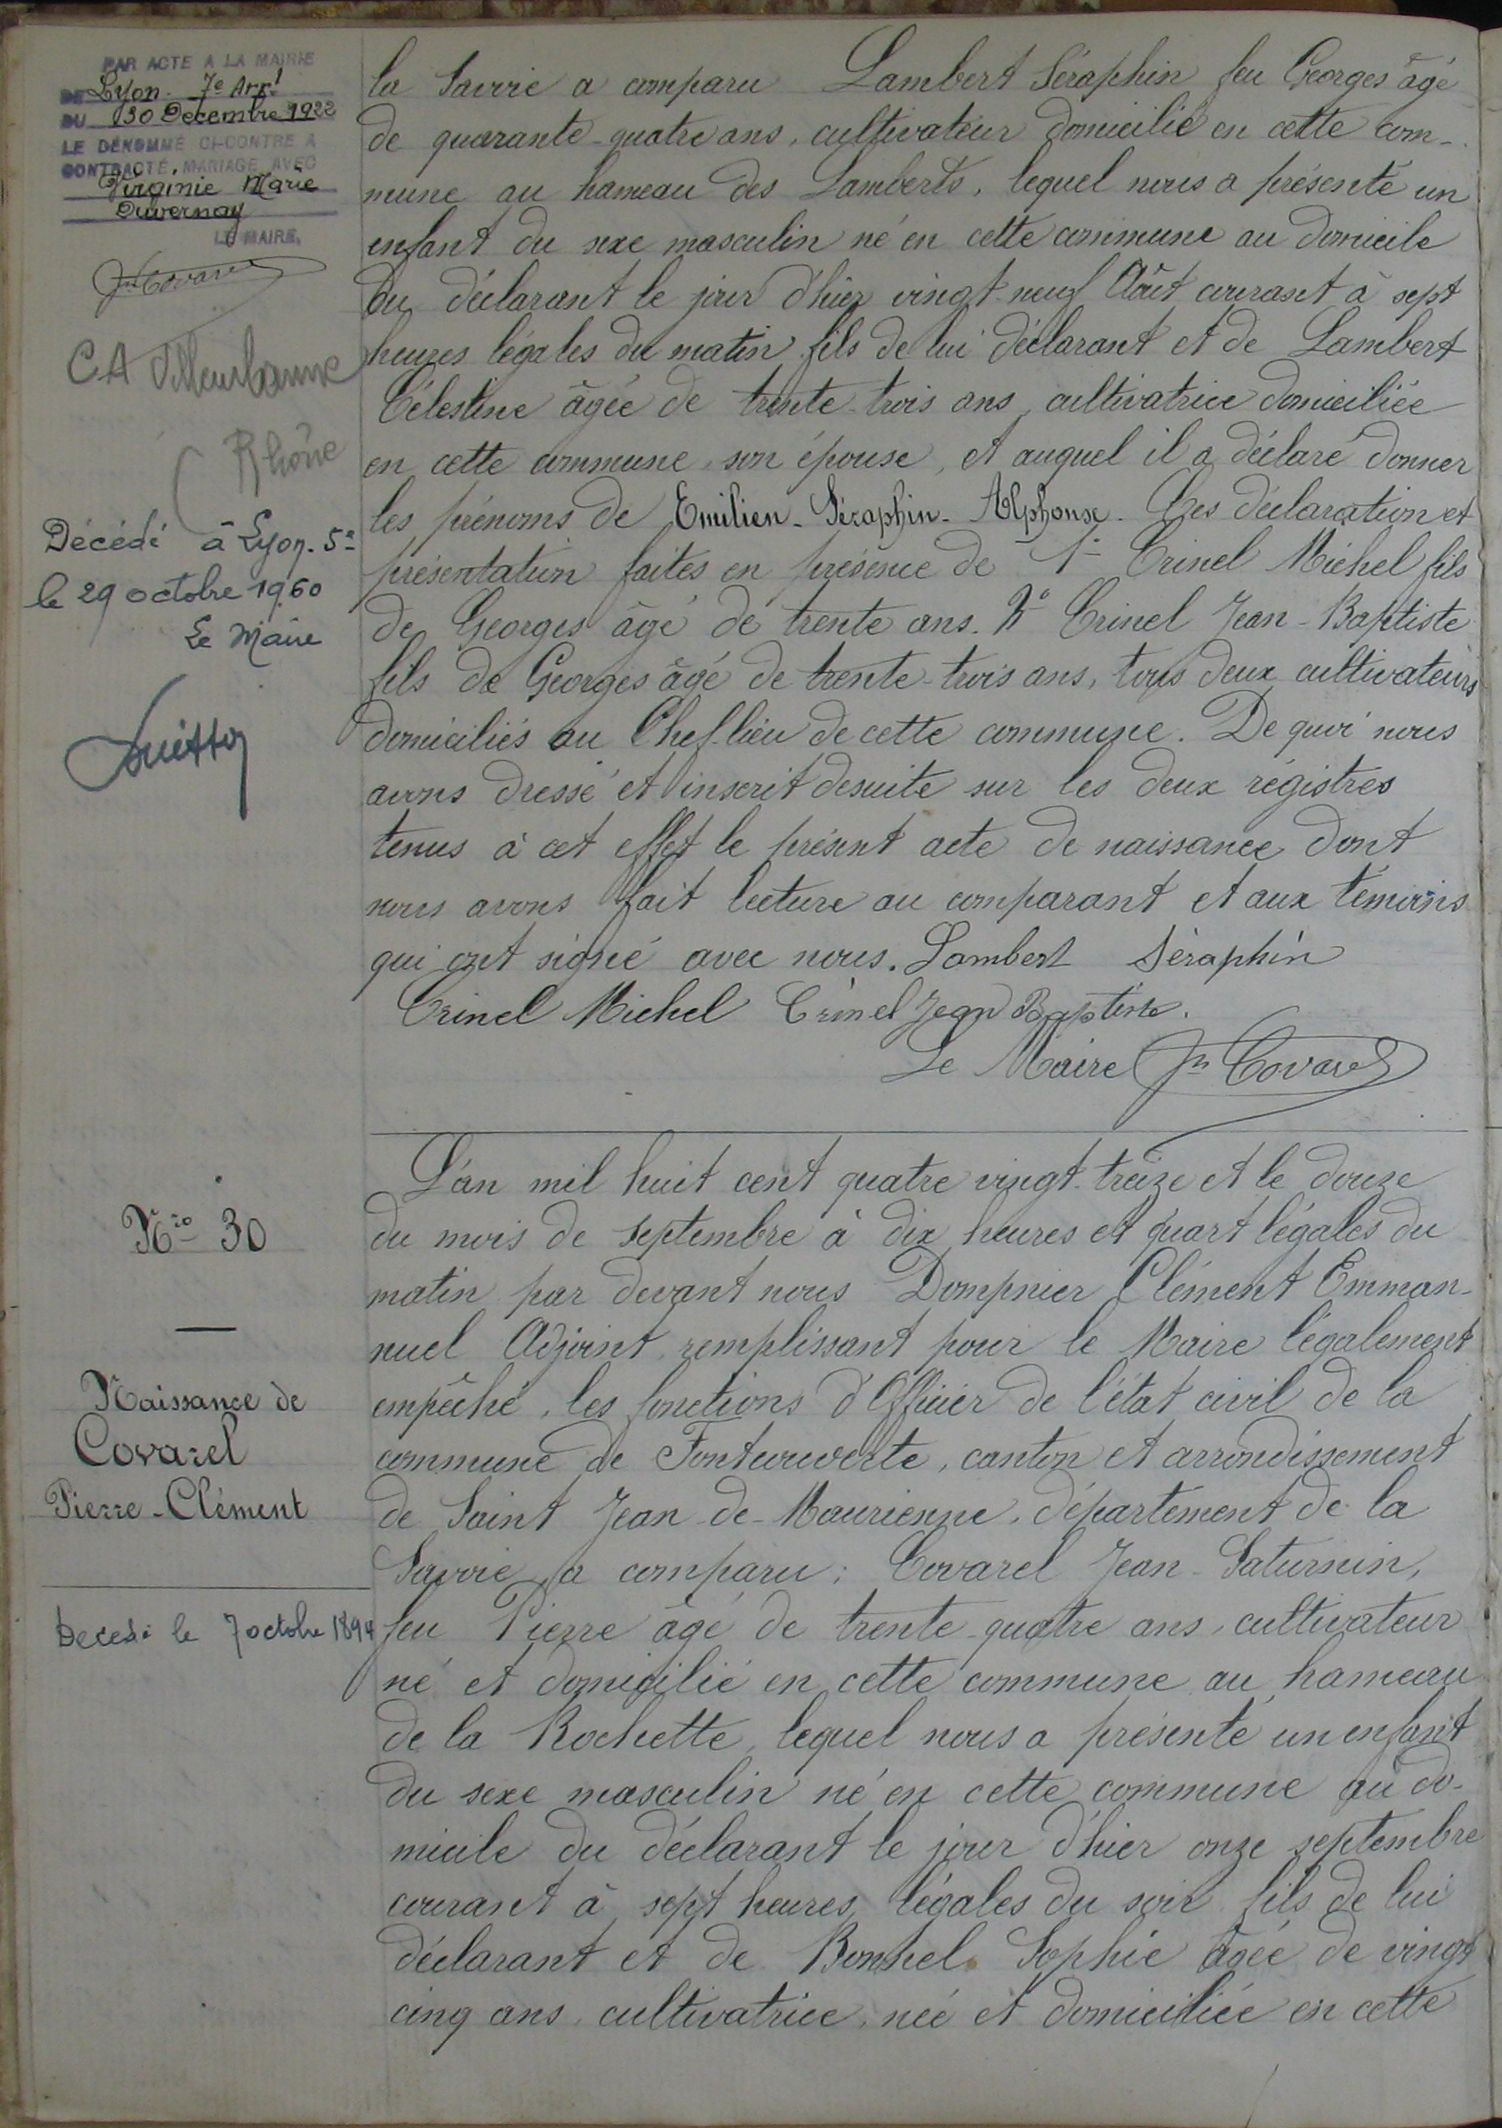 PAR ACTE A LA MAIRIE
DE Lyon. 7e Arrt
DU 30 Décembre 1922
LE DÉNOMMÉ CI-CONTRE A
CONTRACTÉ, MARIAGE AVEC
Virginie Marie
Duvernay
LE MAIRE,
Jn Covarel
C.A Villeurbanne
Rhône
Décédé à Lyon. 5e
le 29 octobre 1960
Le Maire
la Savoie a comparu Lambert Séraphin feu Georges âgé
de quarante-quatre ans, cultivateur domicilié en cette com-
mune au hameau des Lamberts, lequel nous a présenté un
enfant du sexe masculin né en cette commune au domicile
du déclarant le jour d'hier vingt-neuf Août courant à sept
heures légales du matin fils de lui déclarant et de Lambert
Célestine âgée de trente-trois ans, cultivatrice domiciliée
en cette commune, son épouse, et auquel il a déclaré donner
les prénoms de Emilien-Séraphin-Alphonse. Ces déclaration et
présentation faites en présence de 1° Crinel Michel fils
de Georges âgé de trente ans. 2° Crinel Jean-Baptiste
fils de Georges âgé de trente-trois ans, tous deux cultivateurs
domiciliés au Chef-lieu de cette commune. De quoi nous
avons dressé et inscrit desuite sur les deux régistres
tenus à cet effet le présent acte de naissance dont
nous avons fait lecture au comparant et aux témoins
qui ont signé avec nous. Lambert Séraphin
Crinel Michel Crinel Jean Baptiste.
Le Maire Jn Covarel
Nro 30
Naissance de
Covarel
Pierre-Clément
Décédé le 7 octobre 1894
L'an mil huit cent quatre vingt-treize et le douze
du mois de septembre à dix heures et quart légales du
matin par devant nous Dompnier Clément Emman-
nuel Adjoint remplissant pour le Maire légalement
empêché, les fonctions d'Officier de l'état civil de la
commune de Fontcouverte, canton et arrondissement
de Saint Jean-de-Maurienne, département de la
Savoie, a comparu; Covarel Jean-Saturnin,
feu Pierre âgé de trente-quatre ans, cultivateur
né et domicilié en cette commune au hameau
de la Rochette, lequel nous a présenté un enfant
du sexe masculin né en cette commune au do-
micile du déclarant le jour d'hier onze septembre
courant à sept heures légales du soir fils de lui
déclarant et de Bonnel Sophie âgée de vingt
cinq ans, cultivatrice, née et domiciliée en cette